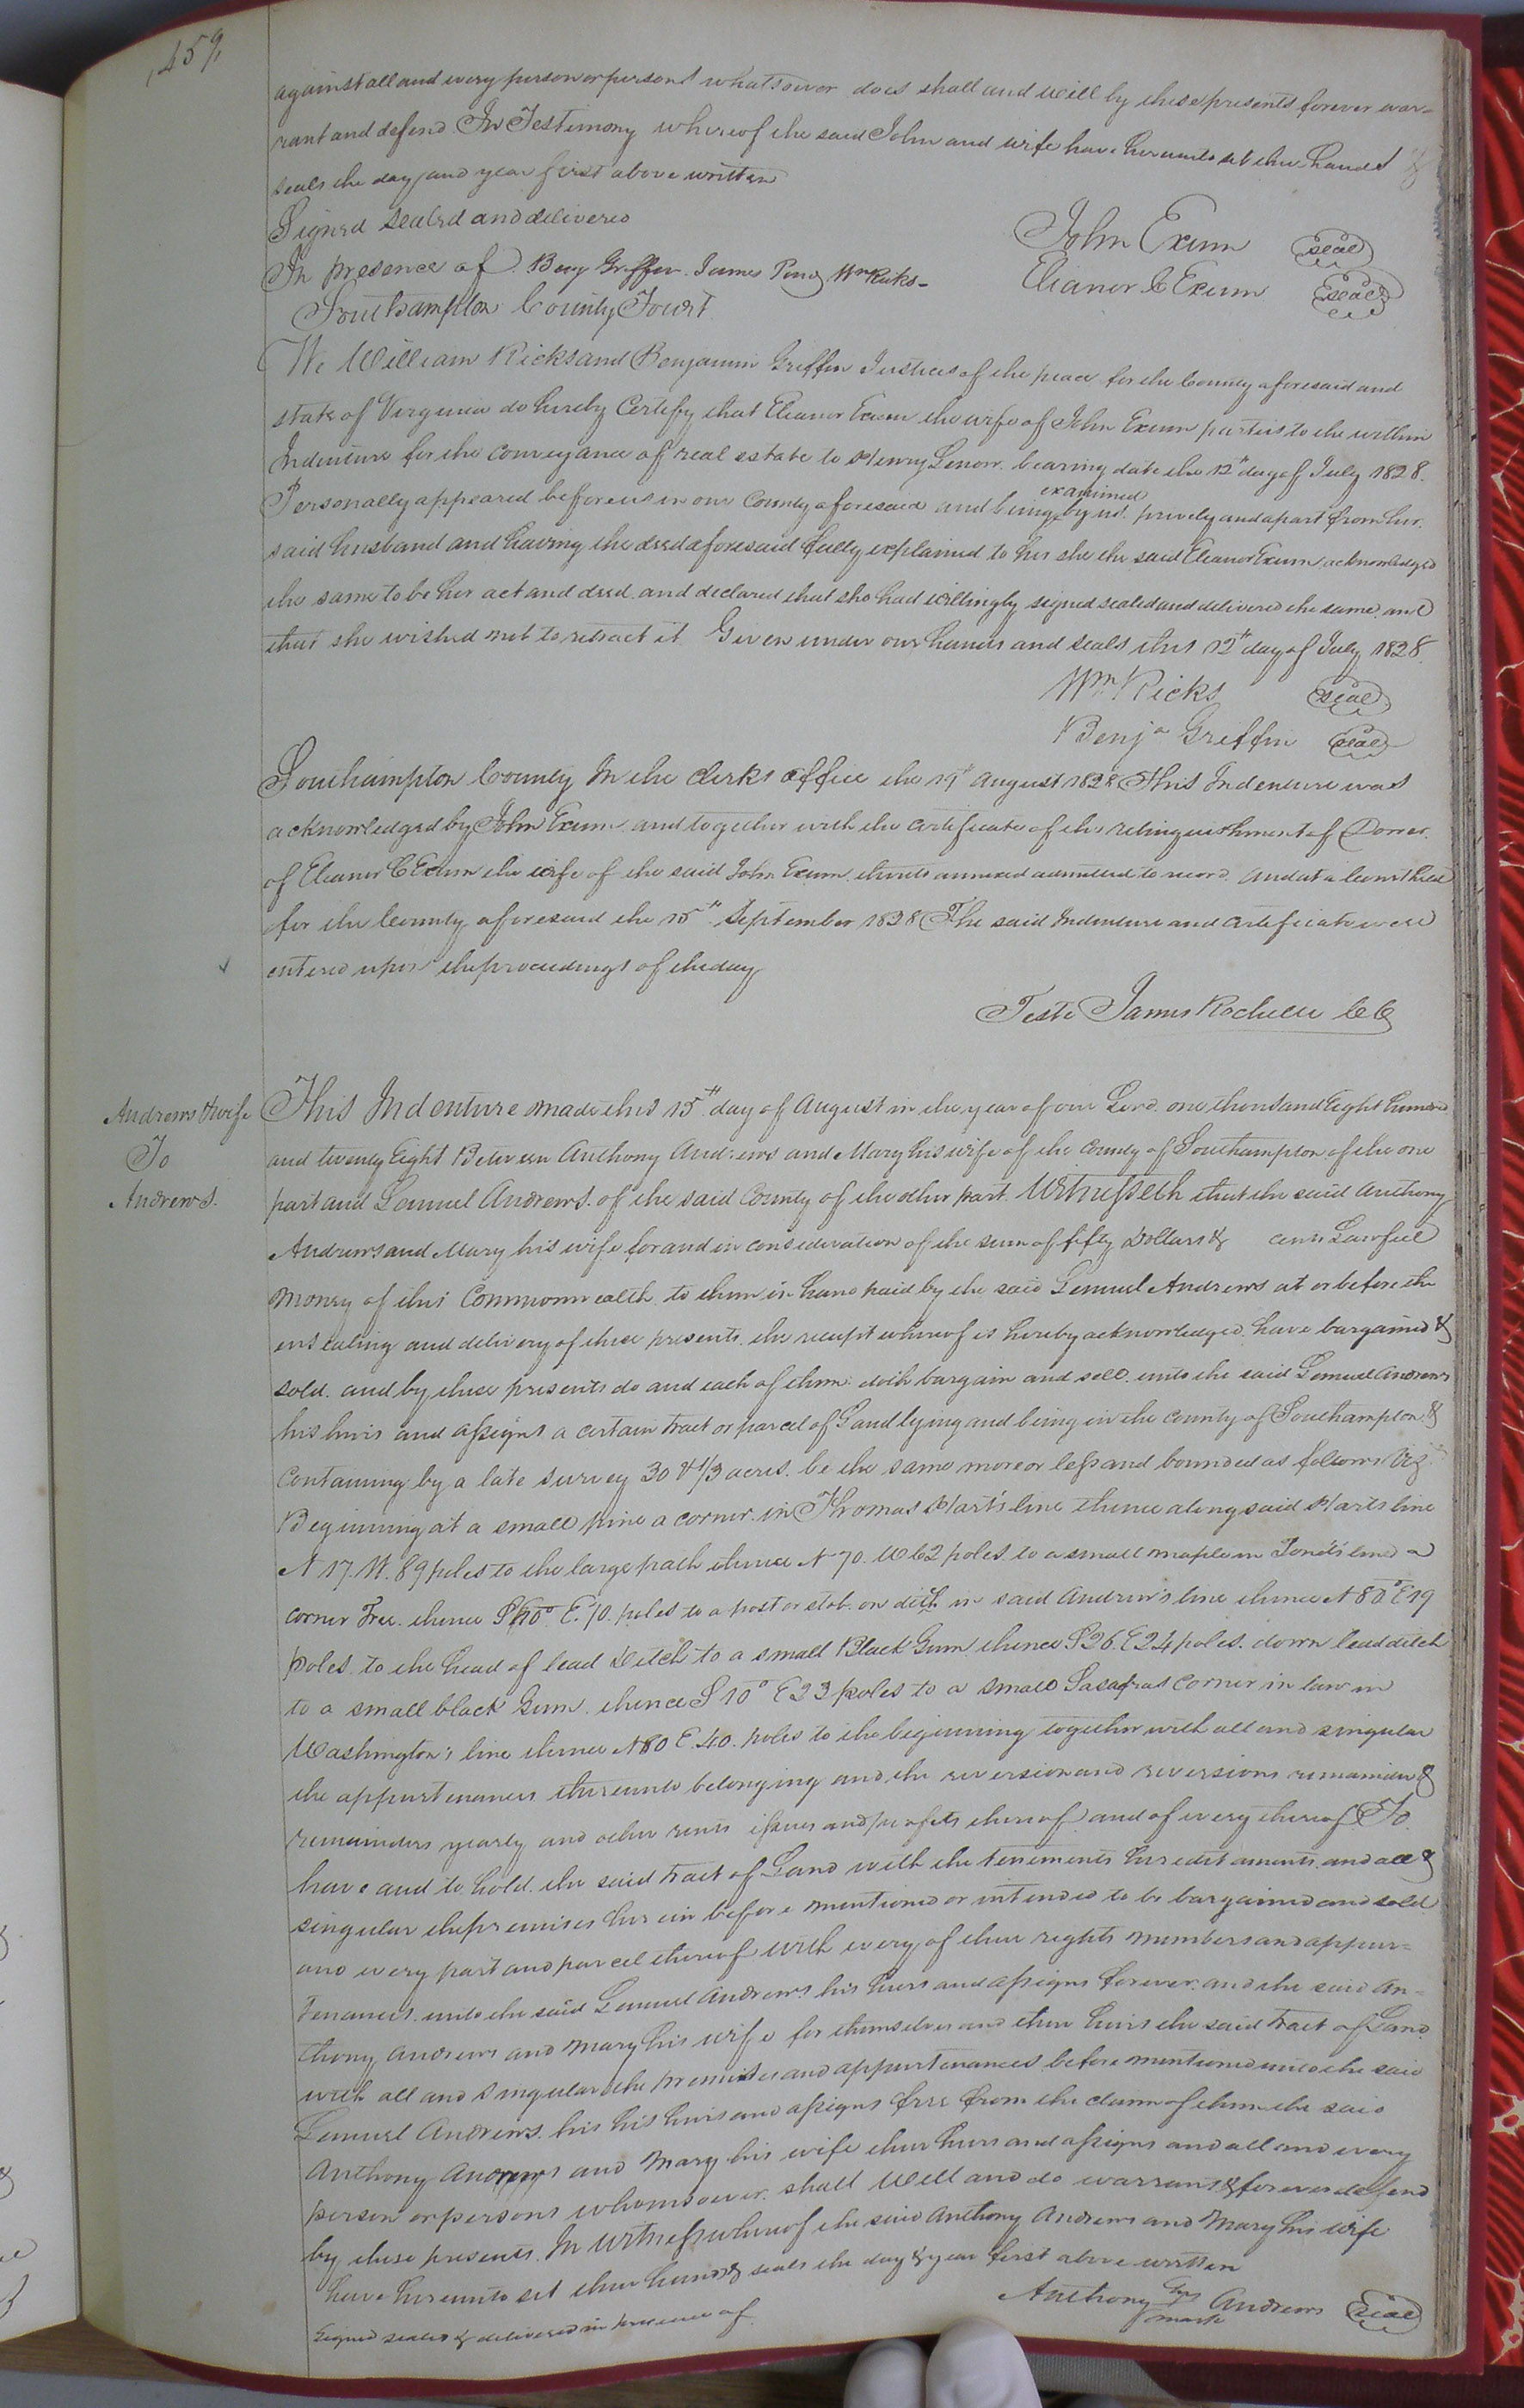 459
against all and every person or persons whatsoever does shall and will by these presents forever war=
rant and defend In Testimony whereof the said John and wife have hereunto set their hands &
seals the day and year first above written
Signed sealed and delivered
In presence of Benj Griffin James Wm Ricks
John Exum seal
Eleanor C Exum seal
Southampton County Towit
We William Ricks and Benjamin Griffin Justices of the peace for the County aforesaid and
state of Virginia do hereby Certify that Eleanor Exum the wife of John Exum parties to the within
Indenture for the conveyance of real estate to Henry Lenow bearing date the 12th day of July 1828.
Personally appeared before us in our County aforesaid and being examined by us prively and apart from her
said husband and having the deed aforesaid fully explained to her she the said Eleanor Exum acknowledged
the same to be her act and deed and declared that she had willingly signed sealed and delivered the same and
that she wished not to retract it Given under our hands and seals this 12th day of July 1828
Wm Ricks seal
Benja Griffin seal
Southampton County In the clerks office the August 1828 This Indenture was
acknowledged by John Exum and together with the certificate of the relinquishment of Dower
of Eleanor C Exum the wife of the said John Exum thereto annexed admitted to record And at a Court held
for the County aforesaid the 15th September 1828 The said Indenture and certificate were
entered upon the proceedings of the day
Teste James Rochelle CC
Andrews & wife
To
Andrews.
This Indenture made this 15th day of August in the year of our Lord one thousand Eight hundred
and twenty Eight Between Anthony Andrews and Mary his wife of the County of Southampton of the one
part and Lemuel Andrews. of the said County of the other part. Witnesseth that the said Anthony
Andrews and Mary his wife for and in consideration of the sum of fifty Dollars & cents Lawful
money of this Commonwealth to them in hand paid by the said Lemuel Andrews at or before the
ensealing and delivery of these presents the receipt whereof is hereby acknowledged have bargained &
sold. and by these presents do and each of them doth bargain and sell unto the said Lemuel Andrews
his heirs and assigns a certain tract or parcel of Land lying and being in the County of Southampton &
Containing by a late survey 30 & 1/3 acres. be the same more or less and bounded as follows Viz
Beginning at a small pine a corner in Thomas Hart's line thence along said Harts line
N 17. W. 89 poles to the large path thence N 70. W 62 poles to a small maple in line a
corner Tree. thence E. poles to a post or stob on ditch in said Andrew's line thence N 80° E 19
poles to the head of lead Ditch to a small Black Gum thence S 26. E 24 poles. down lead ditch
to a small black Gum. thence S 10° E 23 poles to a small Sasafras corner in law in
Washington's line thence N 80 E. 40. poles to the beginning together with all and singular
the appurtenances thereunto belonging and the reversion and reversions remainder &
remainders yearly and other rents issues and profits thereof and of every thereof To
have and to hold the said tract of Land with the tenements hereditaments and all &
singular the premises herein before mentioned or intended to be bargained and sold
and every part and parcel thereof with every of their rights members and appur=
tenances unto the said Lemuel Andrews his heirs and assigns forever and the said An=
thony Andrews and Mary his wife for themselves and their heirs the said tract of Land
with all and singular the premises and appurtenances before mentioned unto the said
Lemuel Andrews his his heirs and assigns free from the claim of them the said
Anthony Andrews and Mary his wife their heirs and assigns and all and every
person or persons whomsoever shall Will and do warrant & forever defend
by these presents. In witness whereof the said Anthony Andrews and Mary his wife
have hereunto set their hands & seals the day & year first above written
Signed sealed & delivered in presence of
Anthony his mark Andrews seal